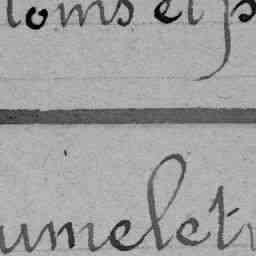 oms et p
umelet